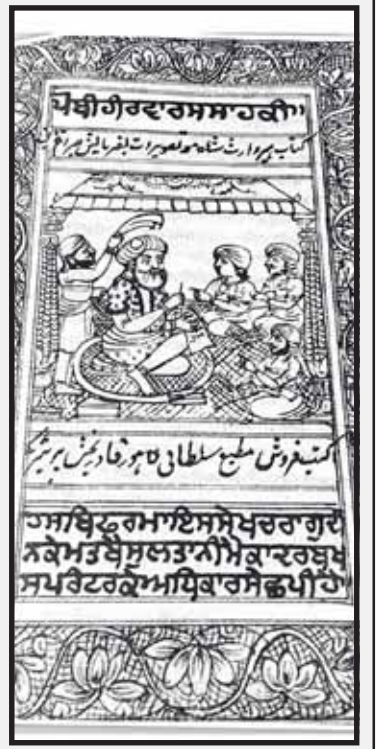 ਪੋਥੀਹੀਰਵਾਰਸਸਾਹਕੀ॥
کتاب ہیر وارث شاہ معہ تصویرات بفرمایش چراغ
کتب فروش مطبع سلطانی لاہور قادر بخش پرنٹر
ਹਸਬਿਫੁਰਮਾਇਸਸੇਖਚਰਾਗੁਦੀ
ਨਕੇਮਤਬੈਸੁਲਤਾਨੀਮੈਕਾਦਰਬਖ
ਸਪਰੈਟਰਕੇਅਧਿਕਾਰਸੇਛਪੀਹੈ